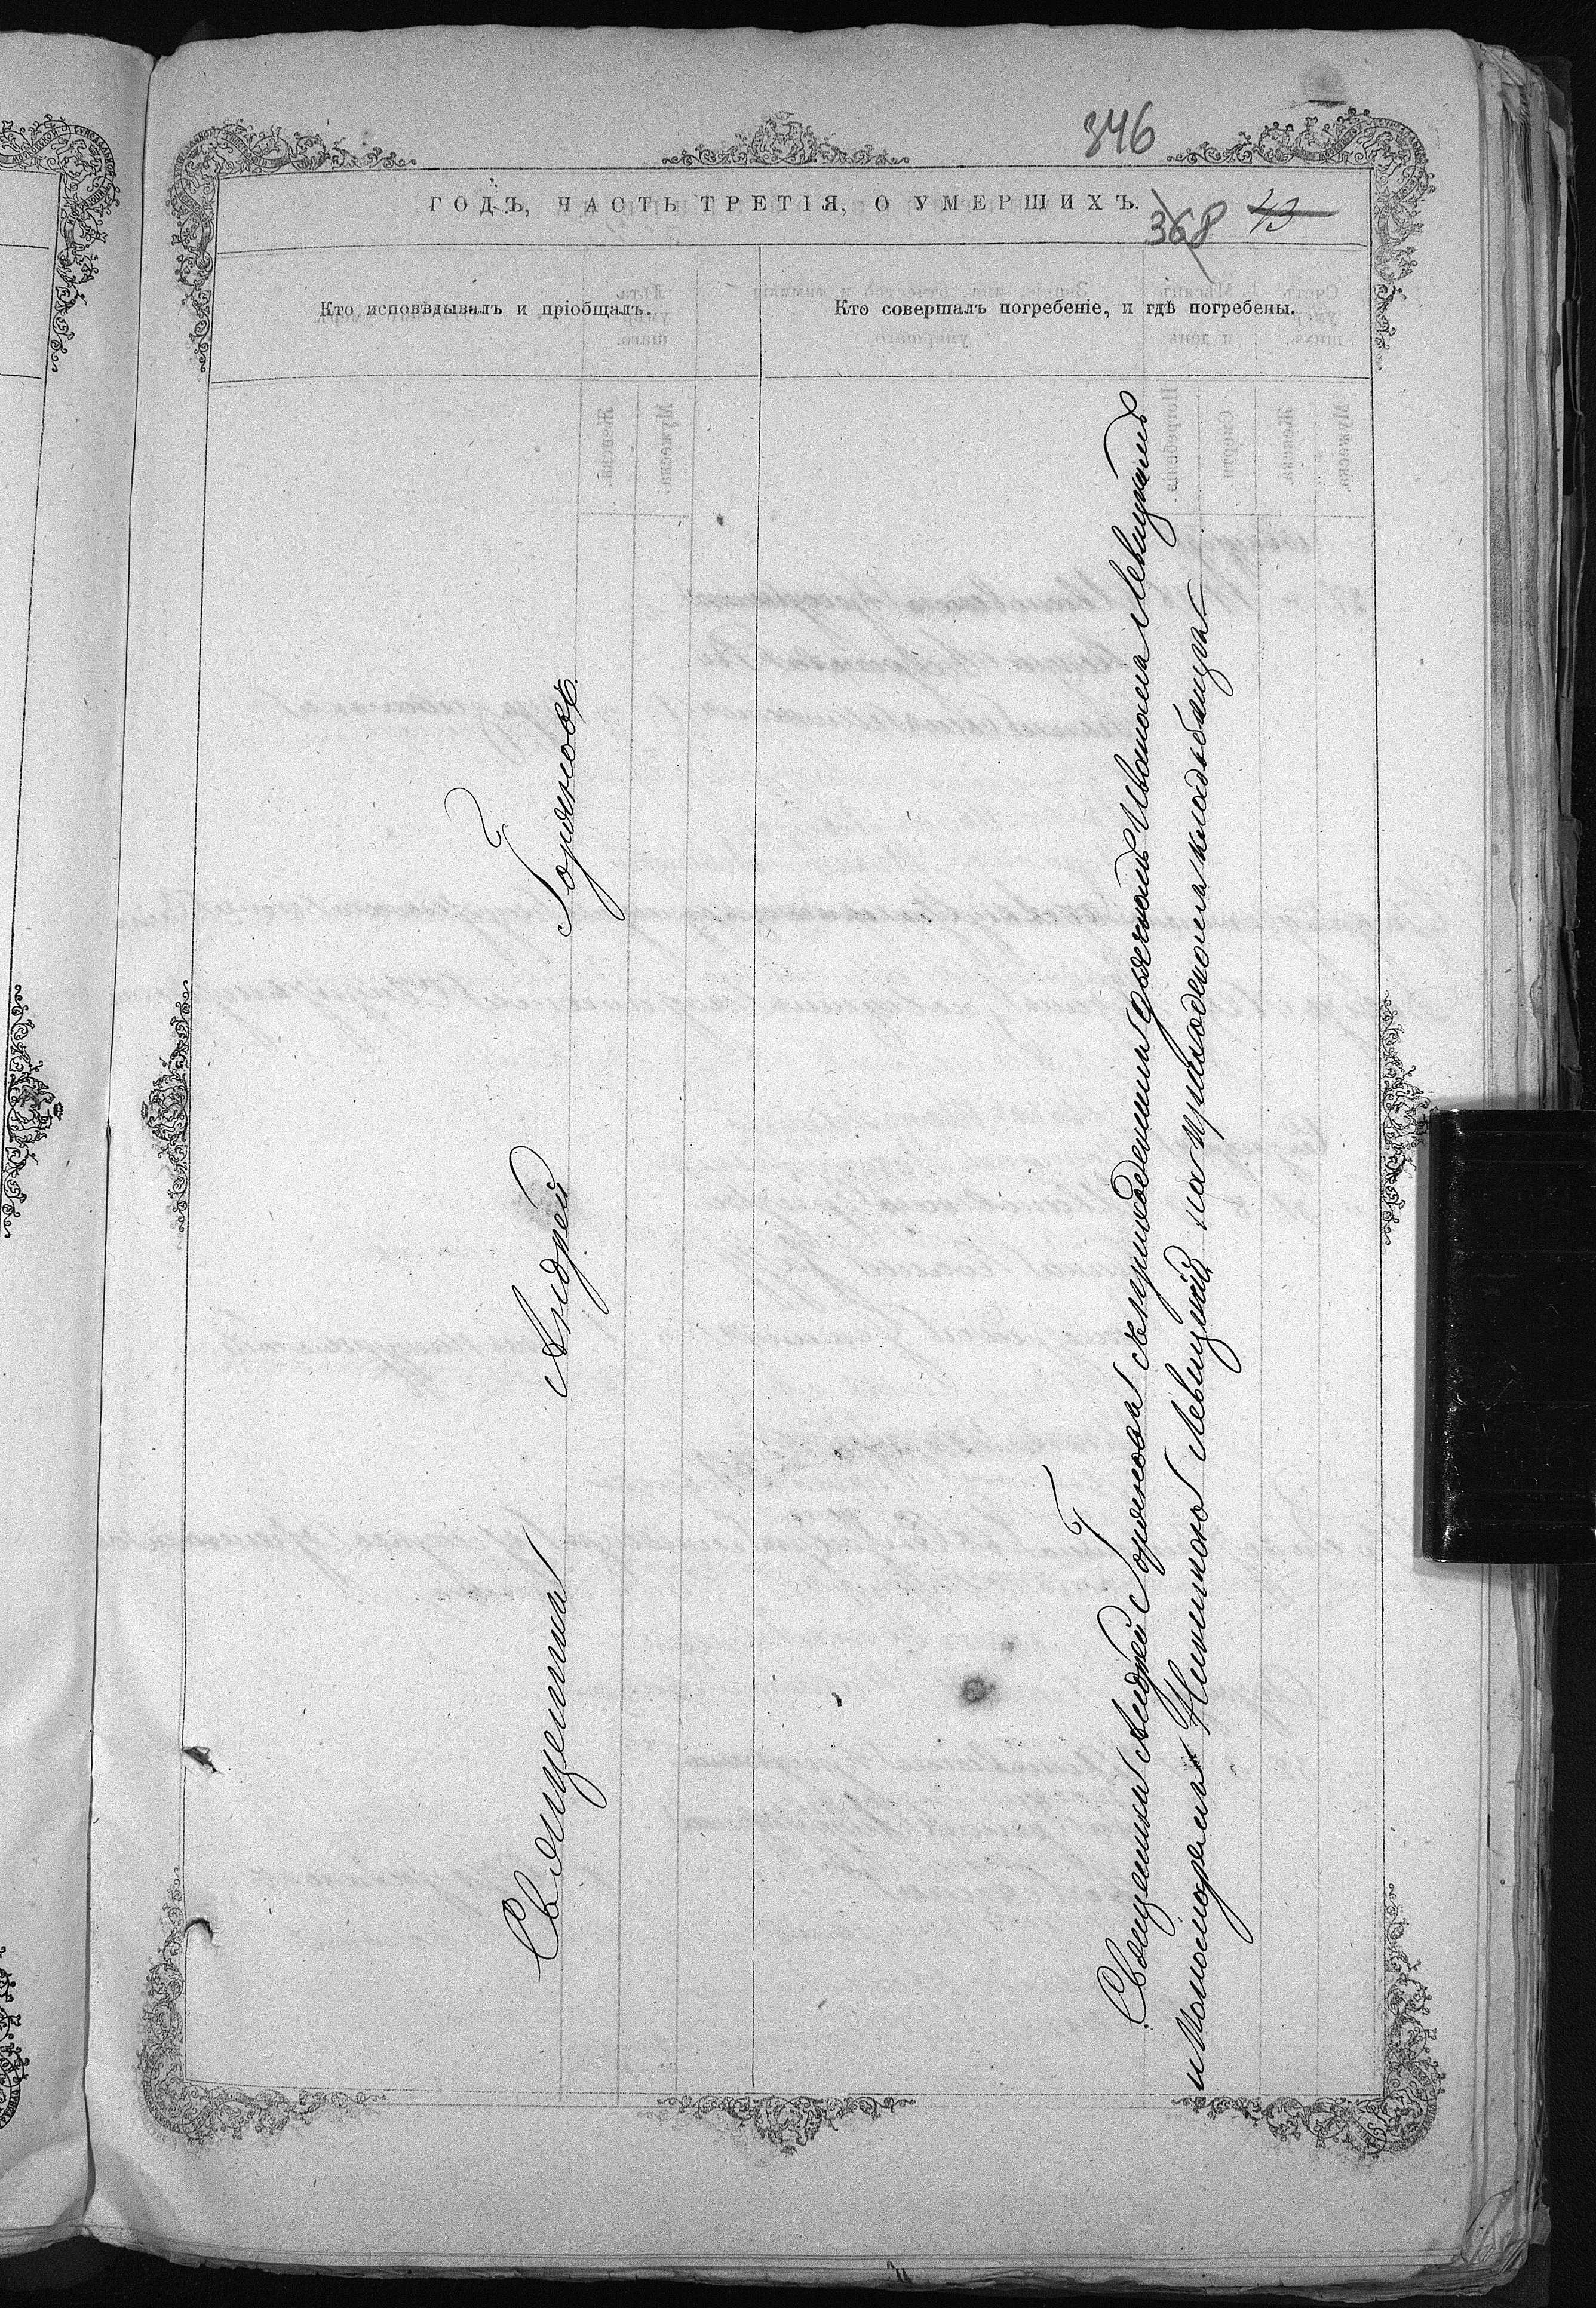 346
ГОДЪ, ЧАСТЬ ТРЕТІЯ, О УМЕРШИХЪ.
368 43
Кто исповѣдывалъ и пріобщалъ.
Кто совершалъ погребеніе, и гдѣ погребены.
Священникъ Андрей Горяновъ.
Священникъ Андрей Горяновъ съ приходскими дьякономъ Иваномъ Левицкимъ
и пономаремъ Никитою Левицкимъ на приходскомъ кладбищѣ